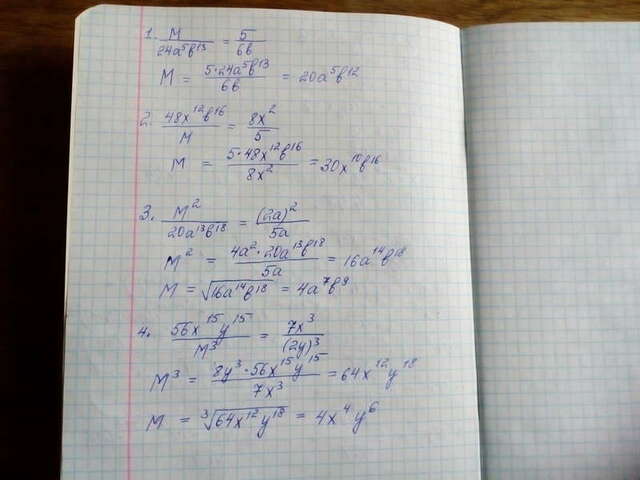 1. M/24a⁵b¹³ = 5/6b
M = 5·24a⁵b¹³/6b = 20a⁵b¹²
2. 48x¹²b¹⁶/M = 8x²/5
M = 5·48x¹²b¹⁶/8x² = 30x¹⁰b¹⁶
3. M²/20a¹³b¹⁸ = (2a)²/5a
M² = 4a²·20a¹³b¹⁸/5a = 16a¹⁴b¹⁸
M = √16a¹⁴b¹⁸ = 4a⁷b⁹
4. 56x¹⁵y¹⁵/M³ = 7x³/(2y)³
M³ = 8y³·56x¹⁵y¹⁵/7x³ = 64x¹²y¹⁸
M = ³√64x¹²y¹⁸ = 4x⁴y⁶